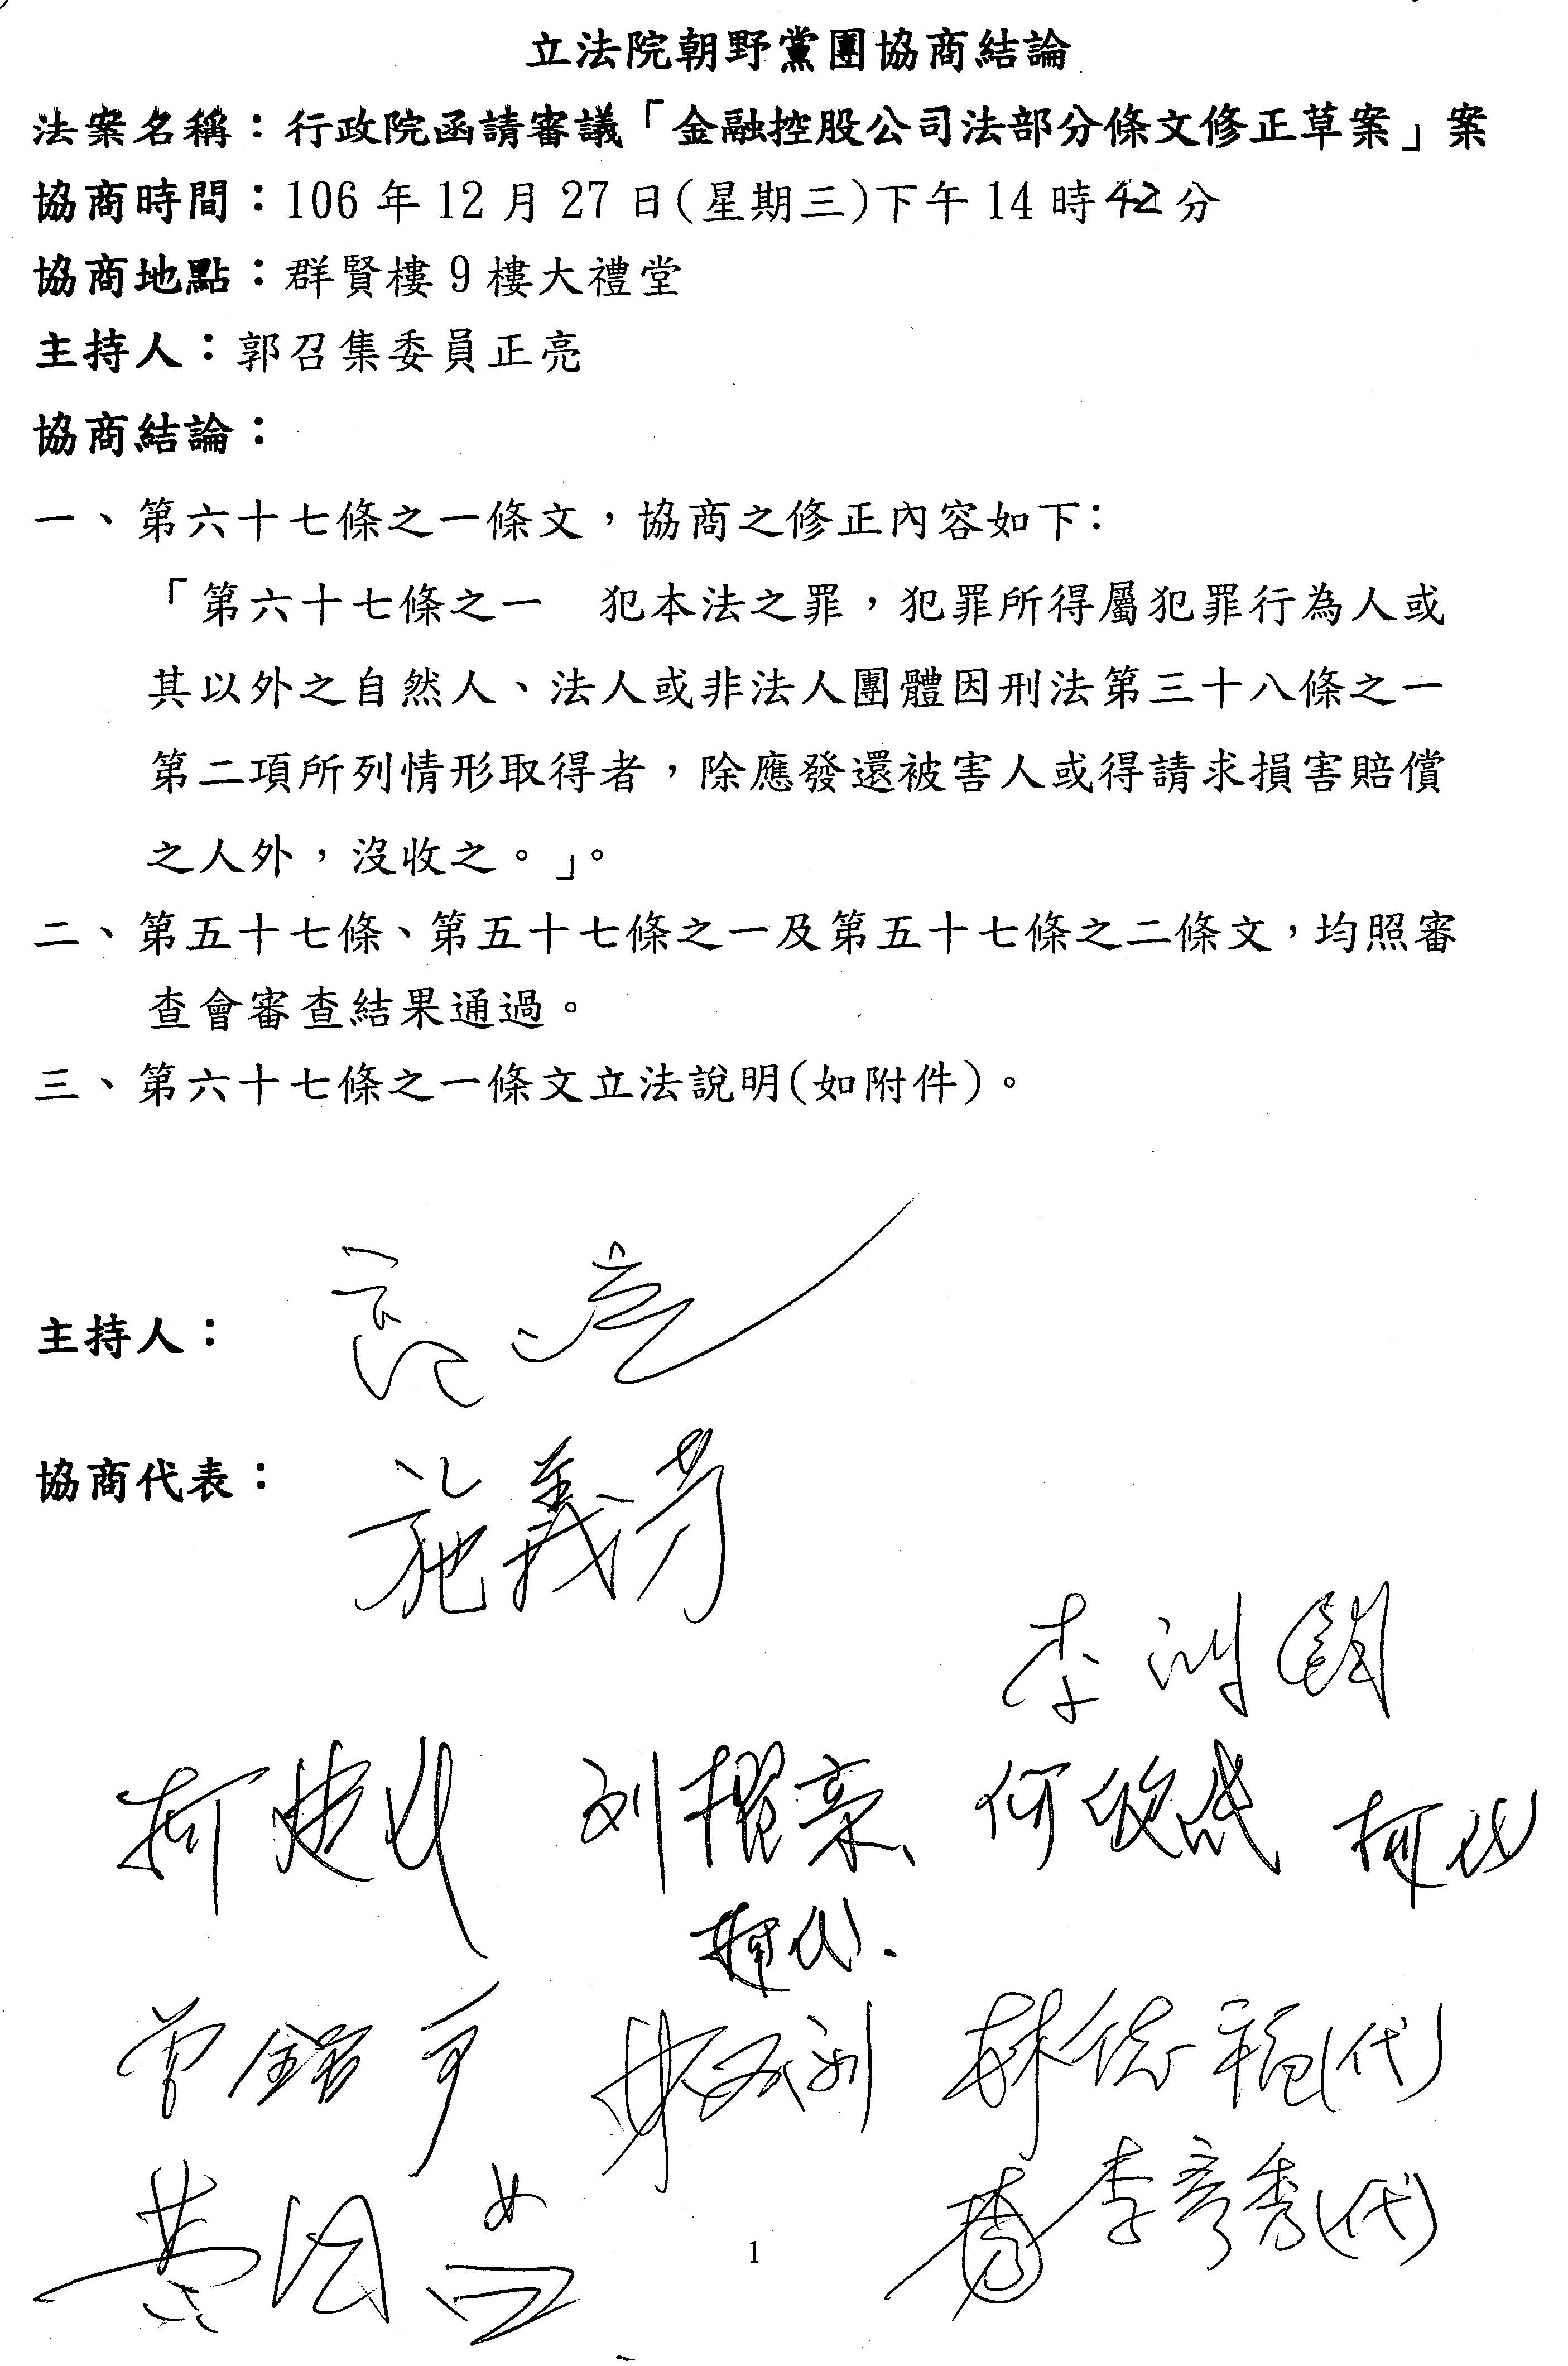 立法院朝野黨團協商結論
法案名稱：行政院函請審議「金融控股公司法部分條文修正草案」案
協商時間：106 年 12 月 27 日(星期三)下午 14 時 42 分
協商地點：群賢樓 9 樓大禮堂
主持人：郭召集委員正亮
協商結論：
一、第六十七條之一條文，協商之修正內容如下：
「第六十七條之一　犯本法之罪，犯罪所得屬犯罪行為人或
其以外之自然人、法人或非法人團體因刑法第三十八條之一
第二項所列情形取得者，除應發還被害人或得請求損害賠償
之人外，沒收之。」。
二、第五十七條、第五十七條之一及第五十七條之二條文，均照審
查會審查結果通過。
三、第六十七條之一條文立法說明(如附件)。
主持人：
協商代表：
施義芳
李鴻鈞
柯建 劉櫂豪 何欣 柯代
代
曾銘宗 林德福(代)
黃 李彥秀(代)
1